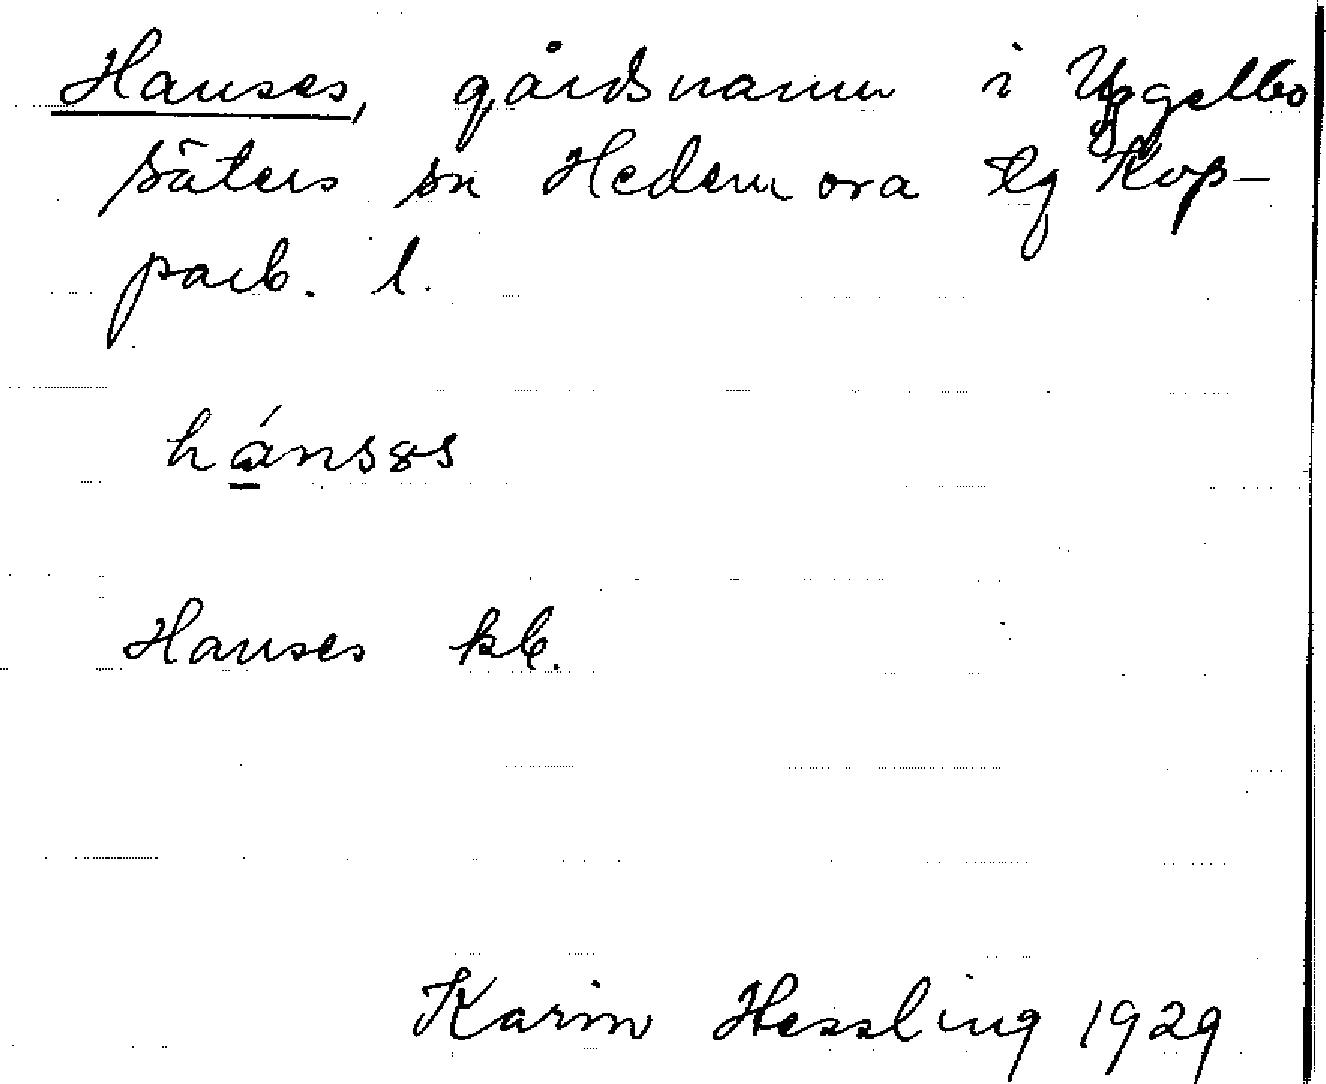 Hanses, gårdsnamn i Yggelbo
Säters sn Hedemora tg Kop-
parb. l.
hánsəs
Hanses kb.
Karin Hessling 1929